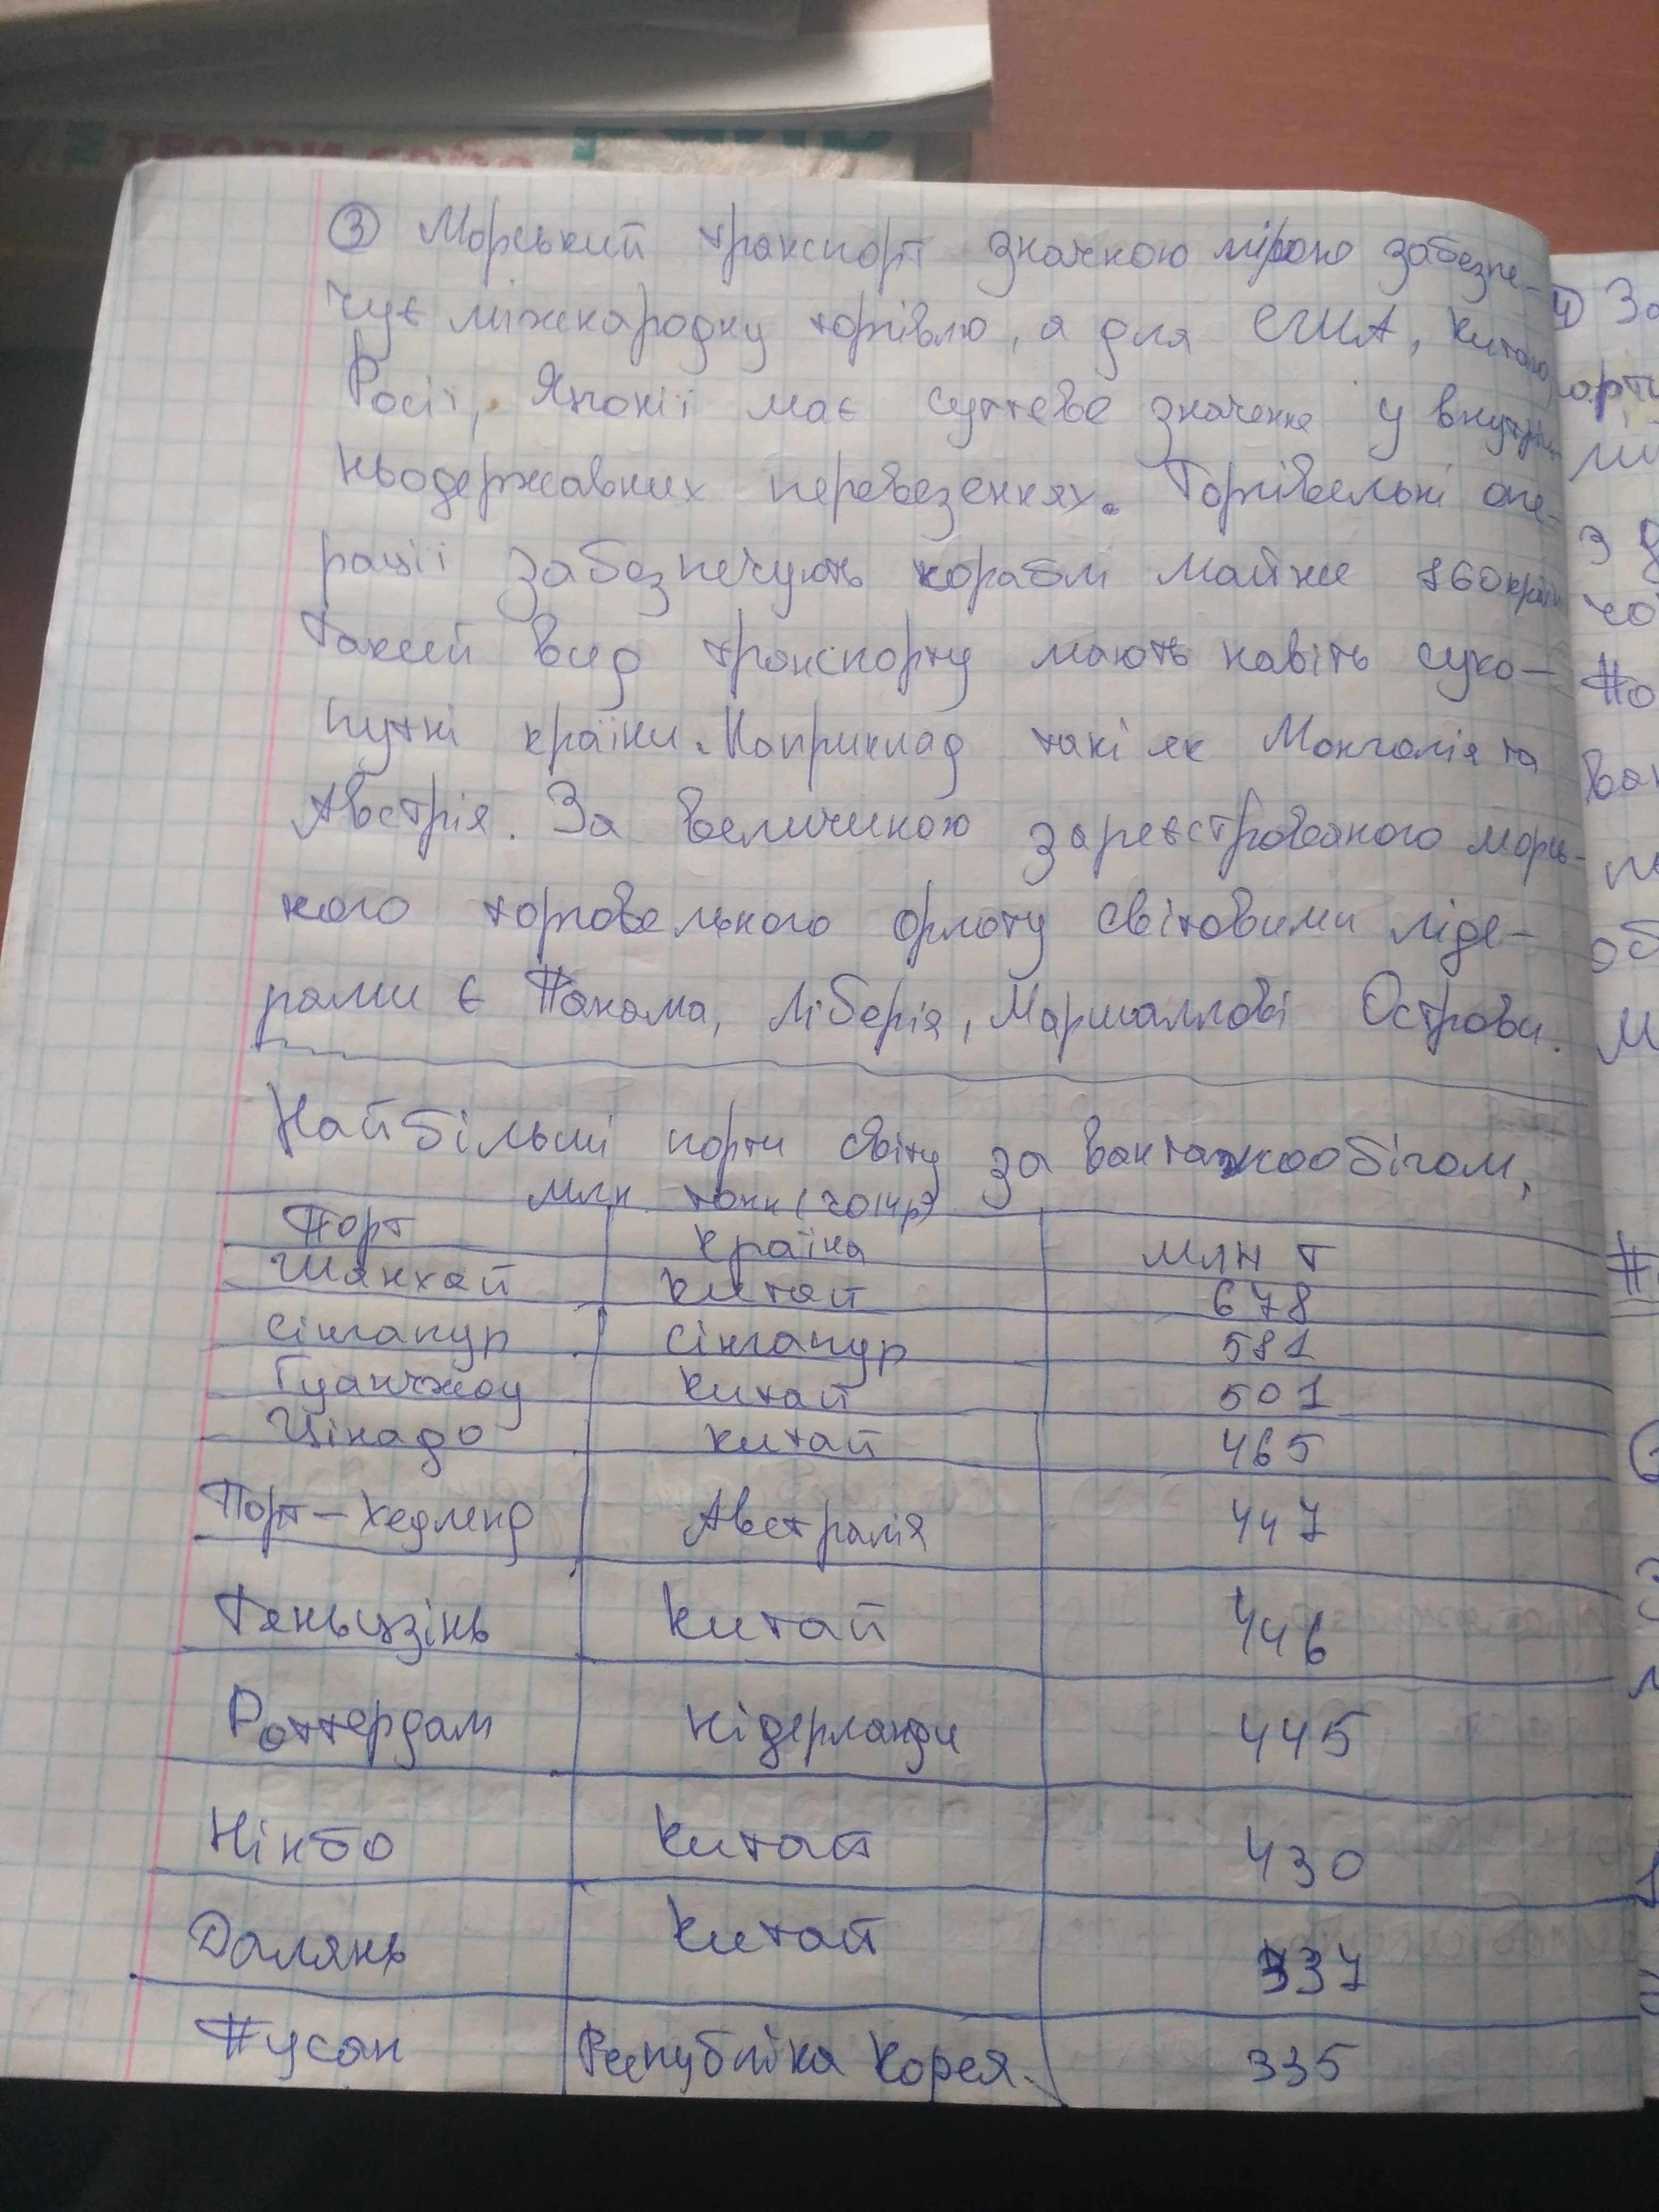 ③ Морський транспорт значною мірою забезпе-
чує міжнародну торгівлю, а для США, Китаю,
Росії, Японії має суттєве значення у внутріш-
ньодержавних перевезеннях. Торгівельні опе-
рації забезпечують кораблі майже 160 країн
Такий вид транспорту мають навіть сухо-
путні країни. Наприклад такі як Монголія та
Австрія. За величиною зареєстрованого морсь-
кого торговельного флоту світовими ліде-
рами є Панама, Ліберія, Маршаллові Острови.
Найбільші порти світу за вантажообігом,
млн тонн (2014р)
Порт Країна млн т
Шанхай Китай 678
Сінгапур Сінгапур 581
Гуанчжоу Китай 501
Цінадо Китай 465
Порт-Хедленд Австралія 447
Теньцзінь Китай 446
Роттердам Нідерланди 445
Нінбо Китай 430
Далянь Китай 337
Пусан Республіка Корея. 335